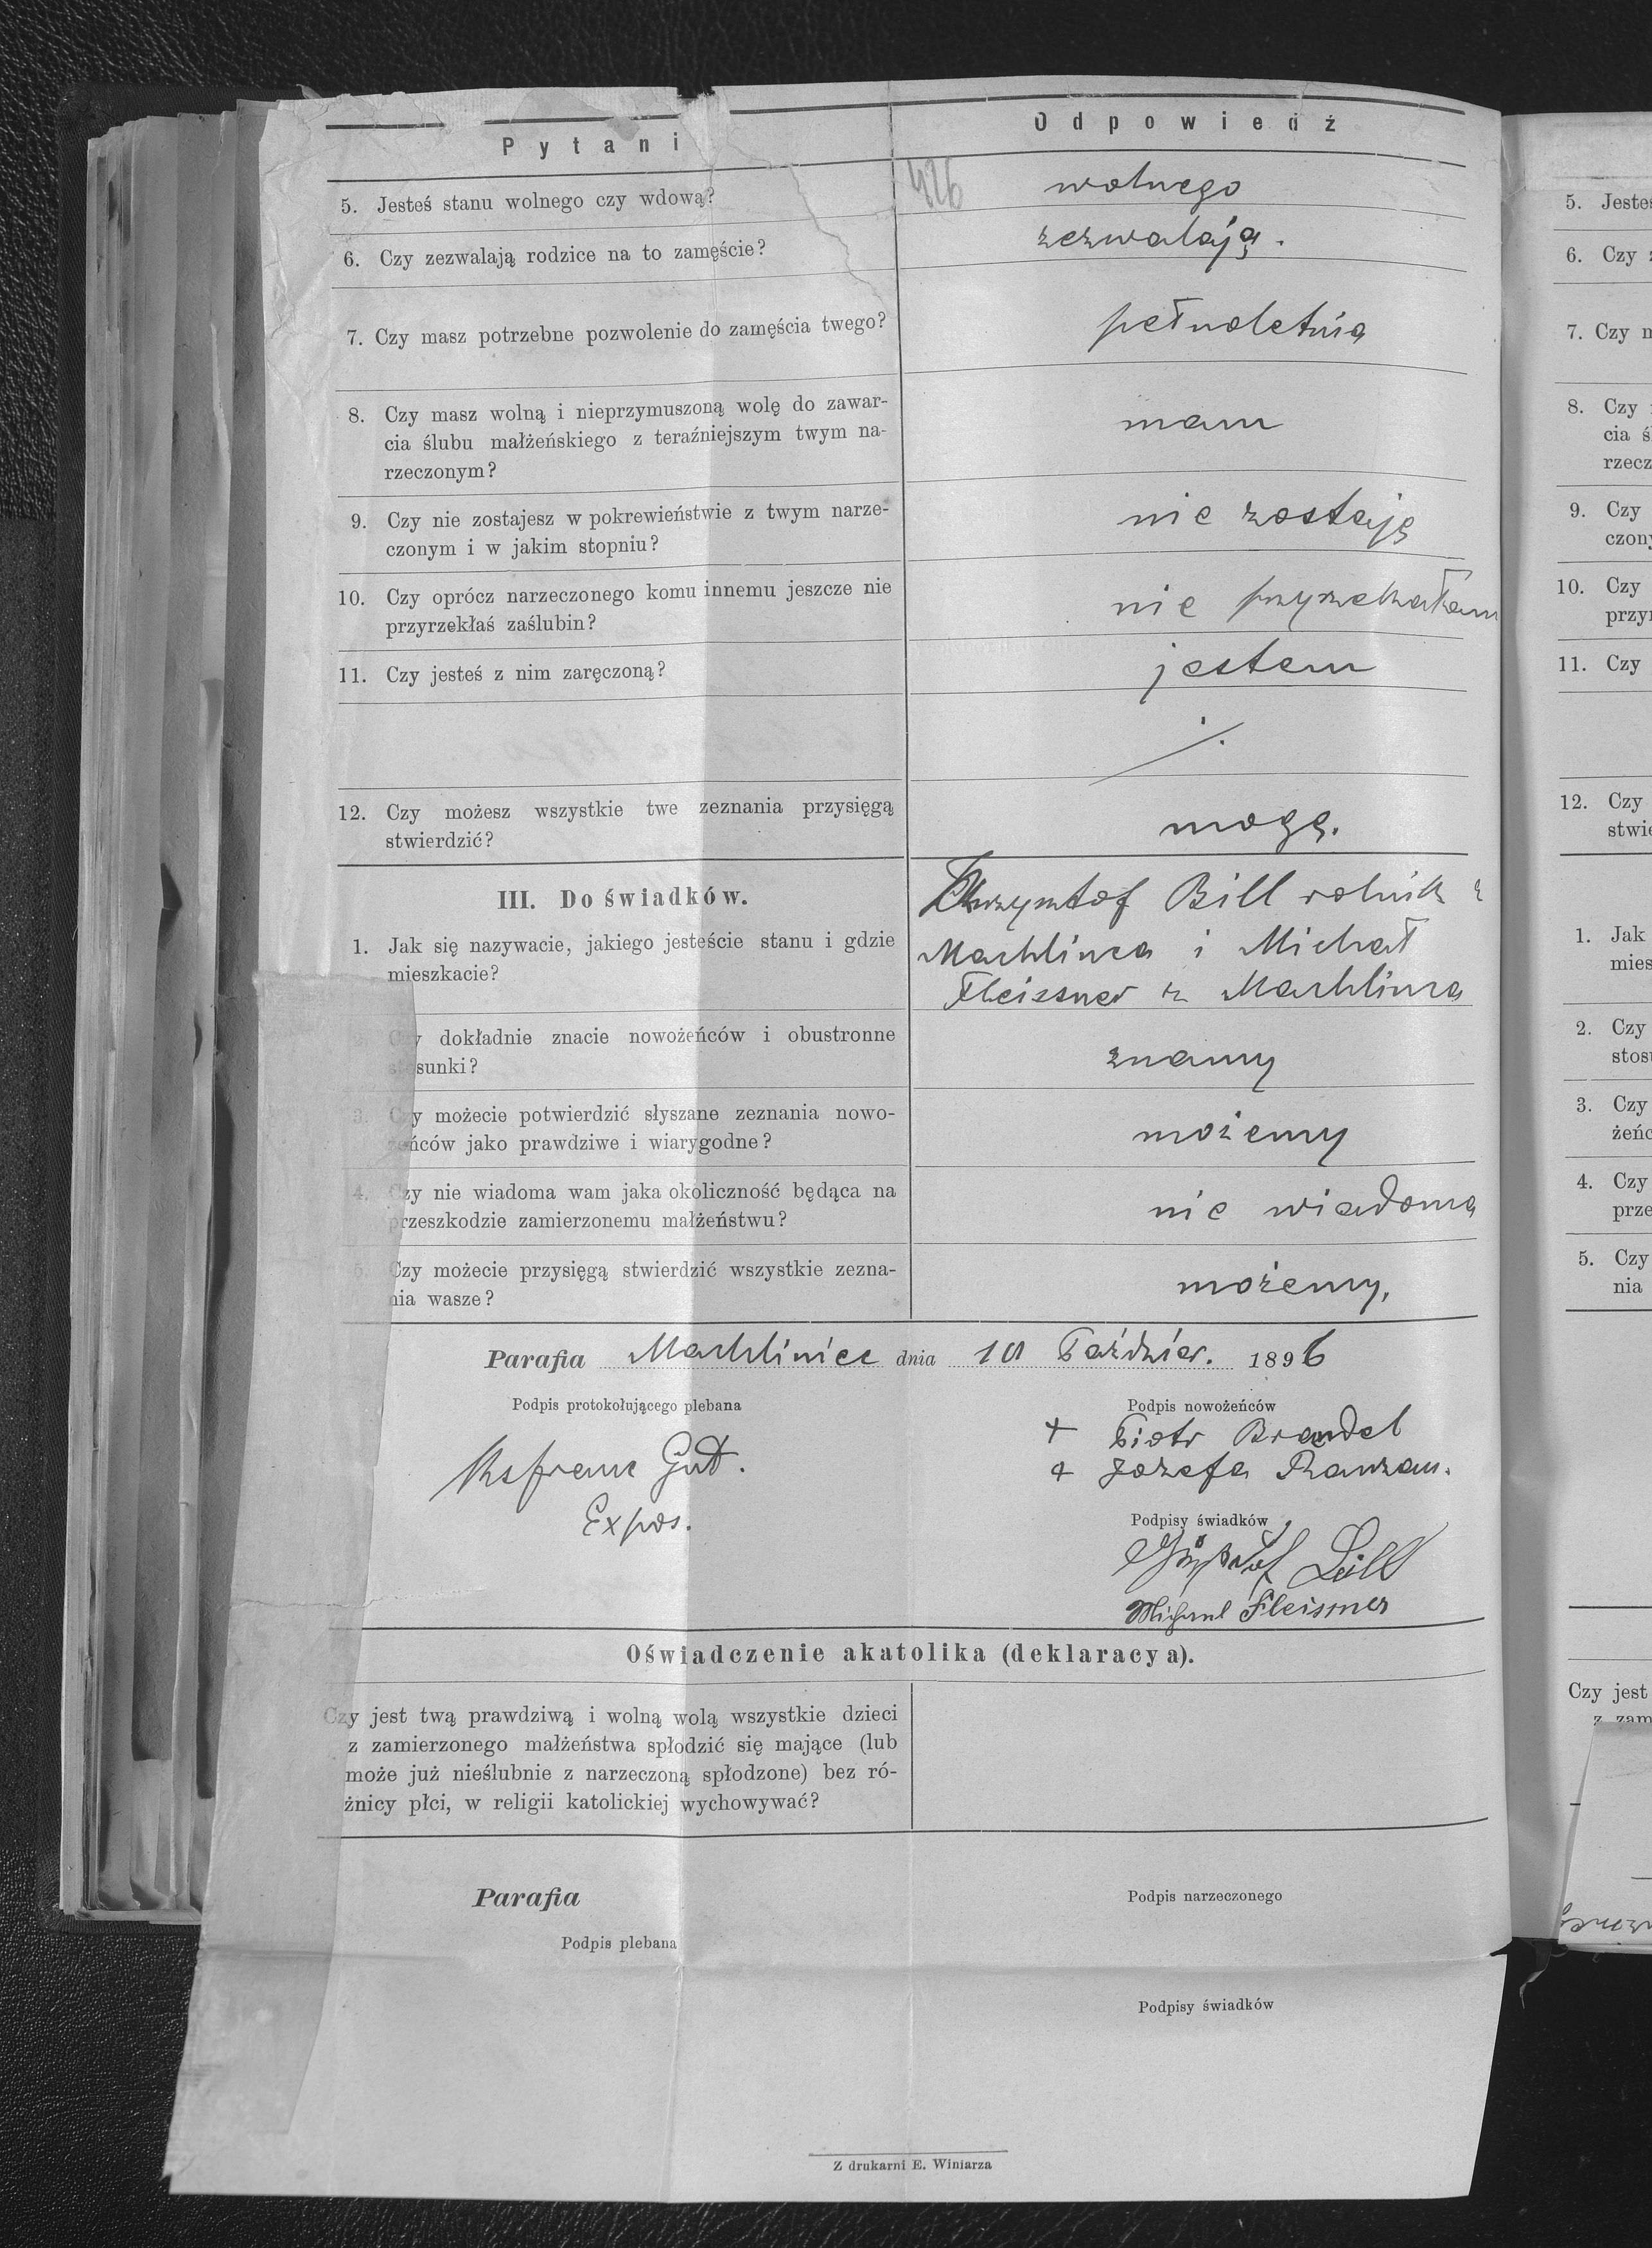 Pytani
Odpowiedź
426
5. Jesteś stanu wolnego czy wdową?
wolnego
6. Czy zezwalają rodzice na to zamęście?
zezwalają.
7. Czy masz potrzebne pozwolenie do zamęścia twego?
pełnoletnia
8. Czy masz wolną i nieprzymuszoną wolę do zawar-
cia ślubu małżeńskiego z teraźniejszym twym na-
rzeczonym?
mam
9. Czy nie zostajesz w pokrewieństwie z twym narze-
czonym i w jakim stopniu?
nie zostaję
10. Czy oprócz narzeczonego komu innemu jeszcze nie
przyrzekłaś zaślubin?
nie przyrzekałam
11. Czy jesteś z nim zaręczoną?
jestem
12. Czy możesz wszystkie twe zeznania przysięgą
stwierdzić?
mogę.
III. Do świadków.
1. Jak się nazywacie, jakiego jesteście stanu i gdzie
mieszkacie?
Bill rolnik z
Machlinca i Michał
Fleissner z Machlinca
2. Czy dokładnie znacie nowożeńców i obustronne
stosunki?
znamy
3. Czy możecie potwierdzić słyszane zeznania nowo-
żeńców jako prawdziwe i wiarygodne?
możemy
4. Czy nie wiadoma wam jaka okoliczność będąca na
przeszkodzie zamierzonemu małżeństwu?
nie wiadoma
5. Czy możecie przysięgą stwierdzić wszystkie zezna-
nia wasze?
możemy,
Parafia Machliniec dnia 10 Paździer. 1896
Podpis protokołującego plebana
Podpis nowożeńców
+ Piotr Brandel
+ Józefa
Gutt.
Expos.
Podpisy świadków
Bill
Michael Fleismer
Oświadczenie akatolika (deklaracya).
Czy jest twą prawdziwą i wolną wolą wszystkie dzieci
z zamierzonego małżeństwa spłodzić się mające (lub
może już nieślubnie z narzeczoną spłodzone) bez ró-
żnicy płci, w religii katolickiej wychowywać?
Parafia
Podpis narzeczonego
Podpis plebana
Podpisy świadków
Z drukarni E. Winiarza
5. Jesteś
6. Czy z
7. Czy m
8. Czy
cia ś
rzecz
9. Czy
czony
10. Czy
przyr
11. Czy
12. Czy
stwie
1. Jak
mies
2. Czy
stos
3. Czy
żeńc
4. Czy
prze
5. Czy
nia
Czy jest
z zam